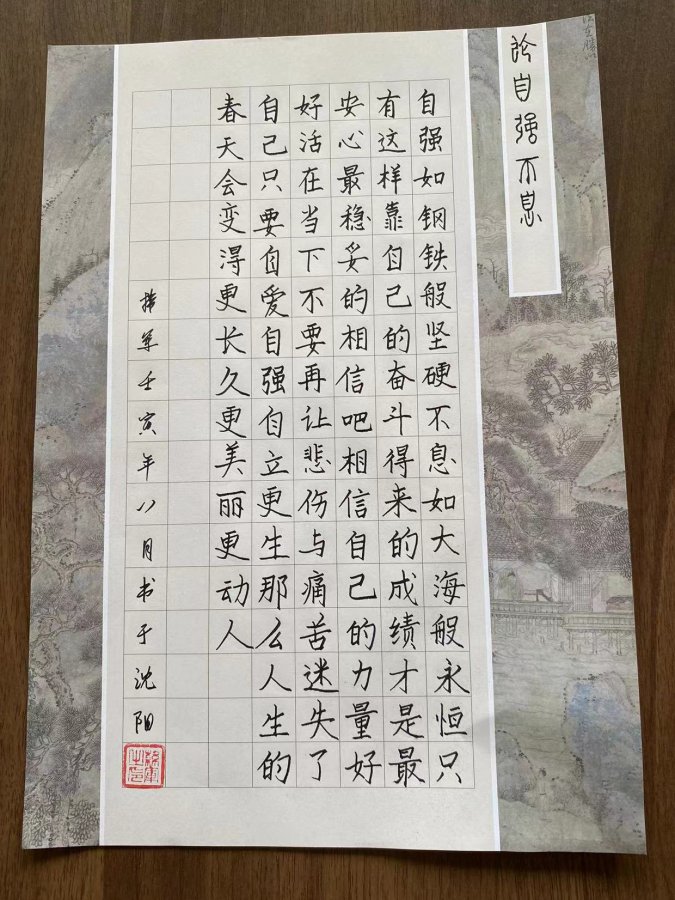 论自强不息
自强如钢铁般坚硬不息如大海般永恒只
有这样靠自己的奋斗得来的成绩才是最
安心最稳妥的相信吧相信自己的力量好
好活在当下不要再让悲伤与痛苦迷失了
自己只要自爱自强自立更生那么人生的
春天会变得更长久更美丽更动人
军壬寅年八月书于沈阳